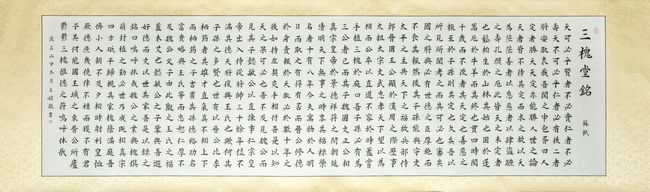 三槐堂銘
蘇軾
天可必乎賢者不必貴仁者不必
壽天不可必乎仁者必有後二者
將安取衷哉吾聞之申包胥曰人
定者勝天天定亦能勝人世之論
天者皆不待其定而求之故以天
為茫茫善者以怠惡者以肆盜跖
之壽孔顏之厄此皆天之未定者
也松柏生於山林其始也困於蓬
蒿厄於牛羊而其終也貫四時閱
千歲而不改者其天定也善惡之
報至於子孫則其定也久矣吾以
所見所聞考之而其可必也審矣
國之將興必有世德之臣厚施而
不食其報然後其子孫能與守文
太平之主共天下之福故兵部侍
郎晉國王公顯於漢周之際歷事
太祖太宗文武忠孝天下望以為
相而公卒以直道不容於時蓋嘗
手植三槐於庭曰吾子孫必有為
三公者已而其子魏國文正公相
真宗皇帝於景德祥符之間朝廷
清明天下無事之時享其福祿榮
名者十有八年今夫寓物於人明
日而取之有得有否而晉公修德
於身責報於天取必於數十年之
後如持左契交手相付吾是以知
天之果可必也吾不及見魏公而
見其子懿敏公以直諫事仁宗皇
帝出入侍從將帥三十餘年位不
滿其德天將復興王氏也歟何其
子孫之多賢也世有以晉公比李
栖筠者其雄才直氣真不相上下
而栖筠之子吉甫其孫德裕功名
富貴略與王氏等而忠恕仁厚不
及魏公父子由此觀之王氏之福
蓋未艾也懿敏公之子鞏與吾遊
好德而文以世其家吾是以錄之
銘曰嗚呼休哉魏公之業與槐俱
萌封植之勤必世乃成既相真宗
四方砥平歸視其家槐陰滿庭吾
儕小人朝不及夕相時射利皇恤
厥德庶幾僥倖不種而穫不有君
子其何能國王城之東晉公所廬
鬱鬱三槐惟德之符嗚呼休哉
歲在丙申冬月王
書